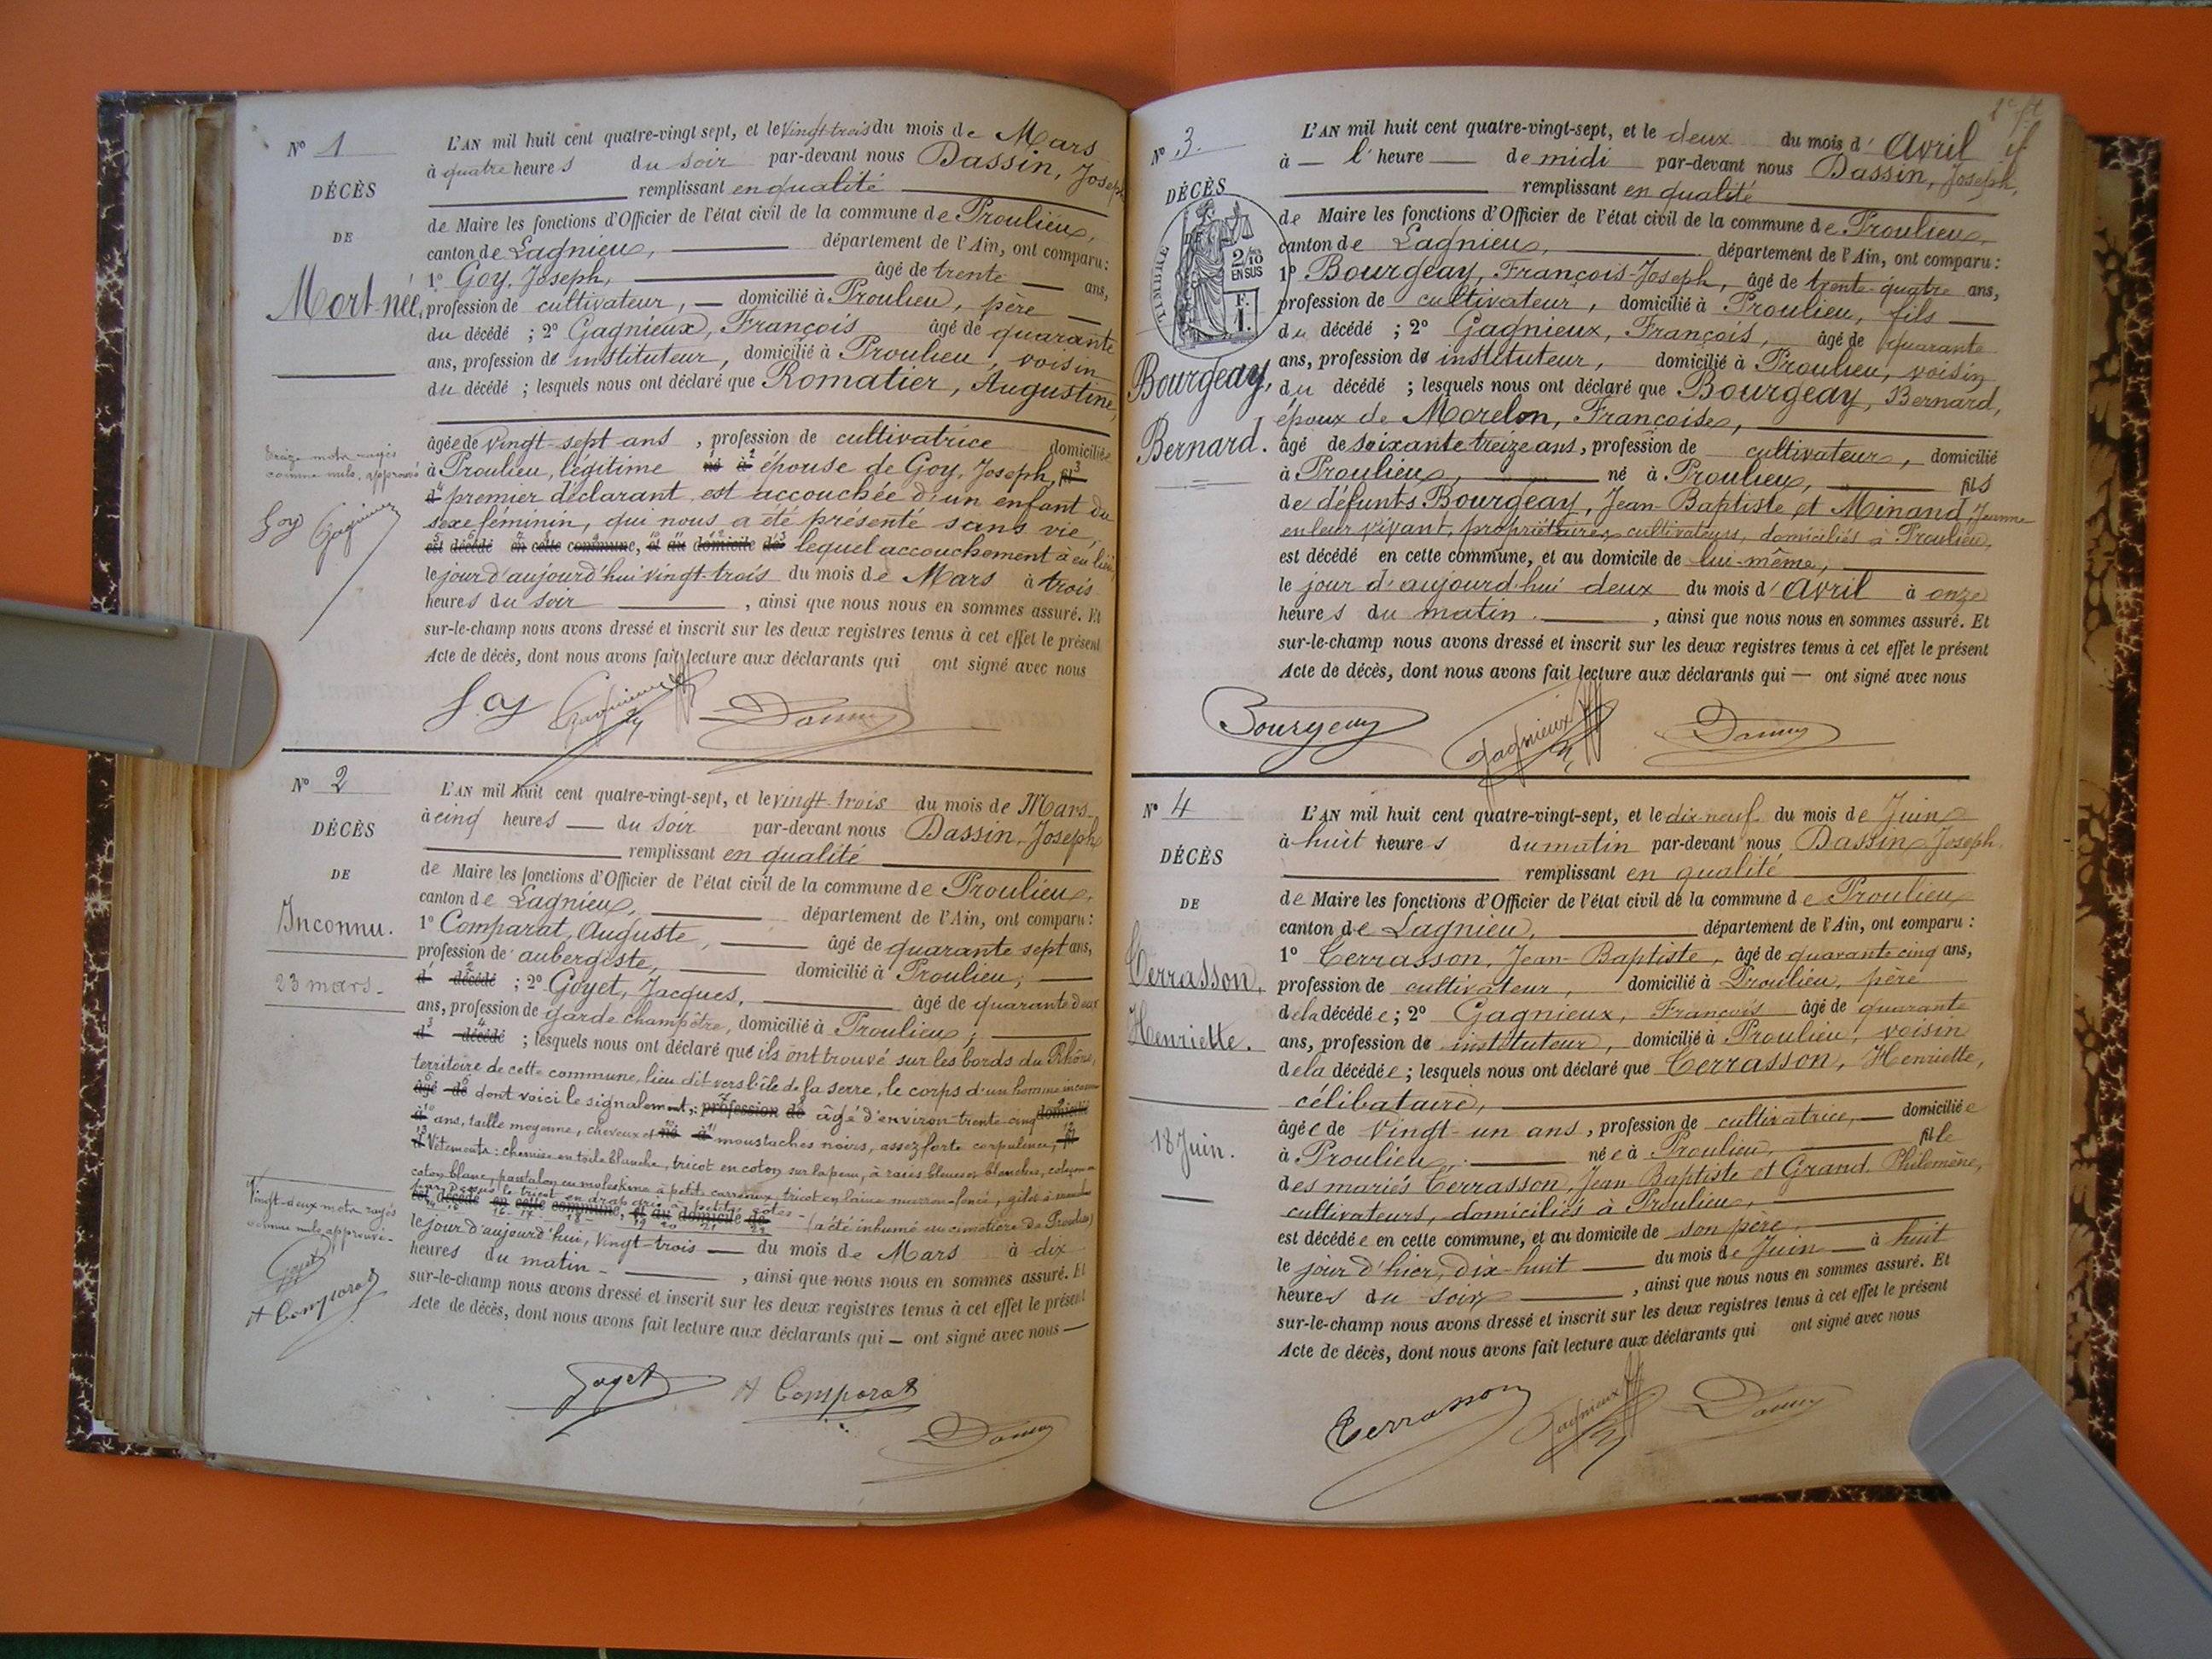 N° 1
DÉCÈS
DE
Mort-née,
treize mots rayés
comme nuls, approuvé
Goy Gagnieux
L'AN mil huit cent quatre-vingt sept, et le vingt-trois du mois de Mars
à quatre heures du soir par-devant nous Dassin, Joseph
remplissant en qualité
de Maire les fonctions d'Officier de l'état civil de la commune de Proulieu,
canton de Lagnieu, département de l'Ain, ont comparu :
1° Goy, Joseph, âgé de trente ans,
profession de cultivateur, domicilié à Proulieu, père
du décédé ; 2° Gagnieux, François âgé de quarante
ans, profession de instituteur, domicilié à Proulieu, voisin
du décédé ; lesquels nous ont déclaré que Romatier, Augustine,
âgée de vingt-sept ans, profession de cultivatrice domiciliée
à Proulieu, légitime né à épouse de Goy, Joseph, fil
d premier déclarant est accouchée d'un enfant du
sexe féminin, qui nous a été présenté sans vie,
est décédé en cette commune, et au domicile de lequel accouchement à eu lieu
le jour d'aujourd'hui vingt-trois du mois de Mars à trois
heures du soir, ainsi que nous nous en sommes assuré. Et
sur-le-champ nous avons dressé et inscrit sur les deux registres tenus à cet effet le présent
Acte de décès, dont nous avons fait lecture aux déclarants qui ont signé avec nous
Goy Gagnieux Dassin
N° 2
DÉCÈS
DE
Inconnu.
23 mars.
Vingt-deux mots rayés
comme nuls, approuvé
Goyet
A Comparat
L'AN mil huit cent quatre-vingt-sept, et le vingt-trois du mois de Mars
à cinq heures du soir par-devant nous Dassin, Joseph
remplissant en qualité
de Maire les fonctions d'Officier de l'état civil de la commune de Proulieu,
canton de Lagnieu, département de l'Ain, ont comparu :
1° Comparat, Auguste, âgé de quarante sept ans,
profession de aubergiste, domicilié à Proulieu,
d décédé ; 2° Goyet, Jacques, âgé de quarante deux
ans, profession de garde champêtre, domicilié à Proulieu,
d décédé ; lesquels nous ont déclaré que ils ont trouvé sur les bords du Rhône,
territoire de cette commune, lieu dit vers l'île de la serre, le corps d'un homme inconnu
âgé de dont voici le signalement : profession de âgé d'environ trente-cinq domicilié
à ans, taille moyenne, cheveux et né à moustaches noirs, assez forte corpulence, fil
d Vêtements : chemise en toile blanche, tricot en coton sur la peau, à raies bleues et blanches, caleçon en
coton blanc, pantalon en moleskine à petits carreaux, tricot en laine marron-foncé, gilet à manches
par dessus le tricot en drap gris à petites côtes
est décédé en cette commune, et au domicile de (a été inhumé au cimetière de Proulieu)
le jour d'aujourd'hui, vingt-trois du mois de Mars à dix
heures du matin, ainsi que nous nous en sommes assuré. Et
sur-le-champ nous avons dressé et inscrit sur les deux registres tenus à cet effet le présent
Acte de décès, dont nous avons fait lecture aux déclarants qui ont signé avec nous
Goyet A Comparat
Dassin
N° 3.
DÉCÈS
DE
TIMBRE
2/10
EN SUS
F.
1.
Bourgeay,
Bernard.
L'AN mil huit cent quatre-vingt-sept, et le deux du mois d'Avril
à l'heure de midi par-devant nous Dassin, Joseph,
remplissant en qualité
de Maire les fonctions d'Officier de l'état civil de la commune de Proulieu,
canton de Lagnieu, département de l'Ain, ont comparu :
1° Bourgeay, François-Joseph, âgé de trente-quatre ans,
profession de cultivateur, domicilié à Proulieu, fils
du décédé ; 2° Gagnieux, François, âgé de quarante
ans, profession de instituteur, domicilié à Proulieu, voisin
du décédé ; lesquels nous ont déclaré que Bourgeay, Bernard,
époux de Morelon, Françoise,
âgé de soixante treize ans, profession de cultivateur, domicilié
à Proulieu, né à Proulieu, fils
de défunts Bourgeay, Jean-Baptiste et Minand Jeanne
en leur vivant, propriétaires cultivateurs, domiciliés à Proulieu,
est décédé en cette commune, et au domicile de lui-même,
le jour d'aujourd'hui deux du mois d'Avril à onze
heures du matin, ainsi que nous nous en sommes assuré. Et
sur-le-champ nous avons dressé et inscrit sur les deux registres tenus à cet effet le présent
Acte de décès, dont nous avons fait lecture aux déclarants qui — ont signé avec nous
Bourgeay Gagnieux Dassin
N° 4
DÉCÈS
DE
Terrasson,
Henriette.
18 Juin.
L'AN mil huit cent quatre-vingt-sept, et le dix-neuf du mois de Juin
à huit heures du matin par-devant nous Dassin Joseph
remplissant en qualité
de Maire les fonctions d'Officier de l'état civil de la commune de Proulieu
canton de Lagnieu, département de l'Ain, ont comparu :
1° Terrasson, Jean-Baptiste, âgé de quarante cinq ans,
profession de cultivateur, domicilié à Proulieu, père
de la décédée ; 2° Gagnieux, François âgé de quarante
ans, profession de instituteur, domicilié à Proulieu, voisin
de la décédée ; lesquels nous ont déclaré que Terrasson, Henriette,
célibataire,
âgée de vingt-un ans, profession de cultivatrice, domiciliée
à Proulieu, née à Proulieu, fille
des mariés Terrasson Jean Baptiste et Grand Philomène,
cultivateurs, domiciliés à Proulieu,
est décédée en cette commune, et au domicile de son père,
le jour d'hier, dix-huit du mois de Juin à huit
heures du soir, ainsi que nous nous en sommes assuré. Et
sur-le-champ nous avons dressé et inscrit sur les deux registres tenus à cet effet le présent
Acte de décès, dont nous avons fait lecture aux déclarants qui ont signé avec nous
Terrasson Gagnieux Dassin